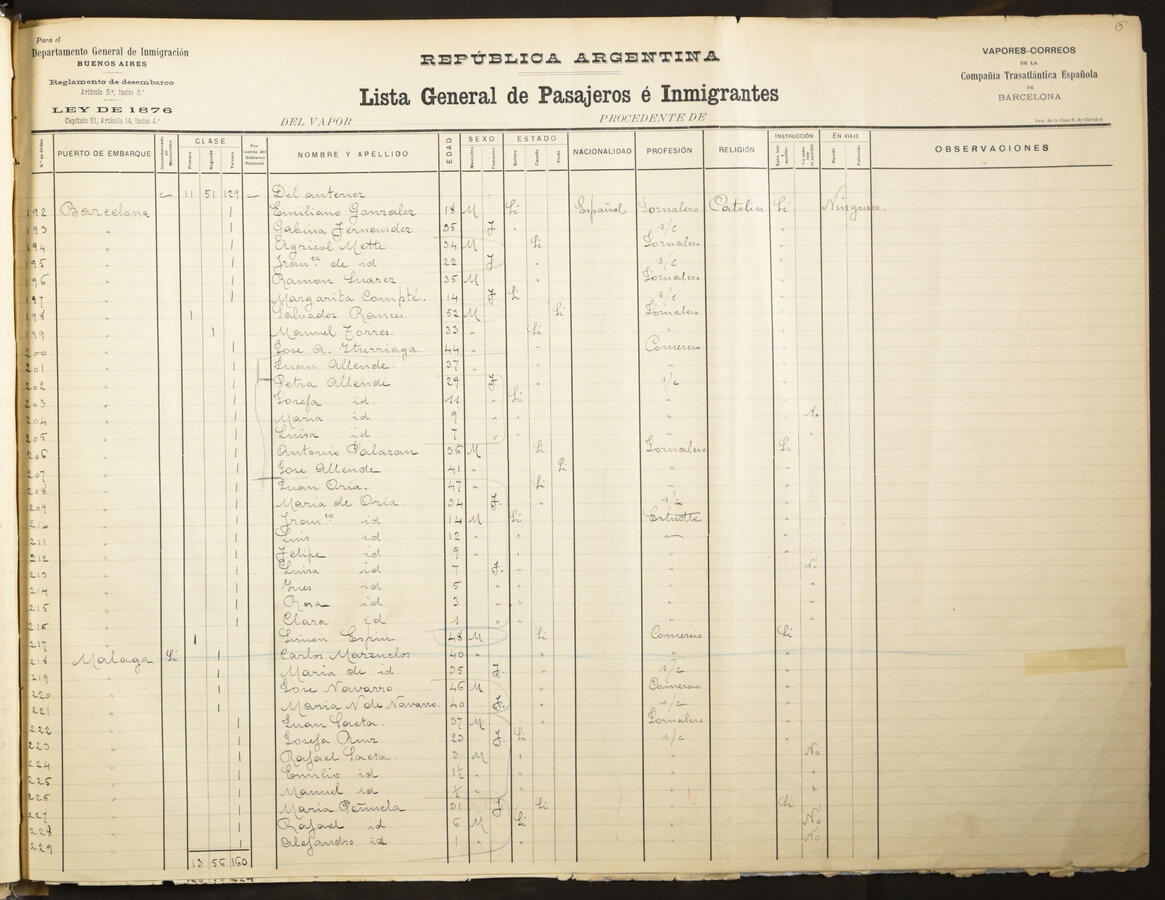 6
Para el
Departamento General de Inmigración
BUENOS AIRES
Reglamento de desembarco
Artículo 5.º, Inciso 8.º
LEY DE 1876
Capítulo 61, Artículo 14, Inciso 4.º
REPÚBLICA ARGENTINA
Lista General de Pasajeros é Inmigrantes
DEL VAPOR PROCEDENTE DE
VAPORES-CORREOS
DE LA
Compañía Trasatlántica Española
DE
BARCELONA
Imp. de la Casa P. de Caridad
N.º de Orden PUERTO DE EMBARQUE CLASE Primera Segunda Tercera Por cuenta del Gobierno Nacional NOMBRE Y APELLIDO EDAD SEXO Masculino Femenino ESTADO Soltero Casado Viudo NACIONALIDAD PROFESIÓN RELIGIÓN INSTRUCCIÓN EN VIAJE Nacido Fallecido OBSERVACIONES
11 51 129 Del anterior
192 Barcelona 1 Emiliano Gonzalez 18 M Si Español Jornalero Catolica Si Ninguno
193 " 1 Gabina Fernendez 35 F " s/c "
194 " 1 Agricol Mette 34 M Si Jornalero "
195 " 1 Fran.ca de id 22 F " s/c "
196 " 1 Ramon Suarez 35 M " Jornalero "
197 " 1 Margarita Compté. 14 F Si s/c "
198 " 1 Salvador Rances 52 M Si Jornalero "
199 " 1 Manuel Torres. 33 " Si " "
200 " 1 Jose A. Iturriaga 44 " " Comercio "
201 " 1 Juan Allende. 37 " " " "
202 " 1 Petra Allende 29 F " s/c "
203 " 1 Josefa id 11 " Si " "
204 " 1 Maria id 9 " " " No
205 " 1 Luisa id 7 " " " "
206 " 1 Antonio Palazan 36 M Si Jornalero Si
207 " 1 Jose Allende 41 " Si " "
208 " 1 Juan Oria. 47 " Si " "
209 " 1 Maria de Oria 34 F " s/c "
210 " 1 Fran.co id 14 M Si Estudte "
211 " 1 Luis id 12 " " "
212 " 1 Felipe id 9 " " " "
213 " 1 Luisa id 7 F " " No
214 " 1 Ynes id 5 " " " "
215 " 1 Rosa id 3 " " " "
216 " 1 Clara id 1 " " " "
217 1 Simon Espin 48 M Si Comercio Si
218 Malaga Si 1 Carlos Marzuelos 40 " " " "
219 " 1 Maria de id 35 F " s/c "
220 " 1 Jose Navarro 46 M " Comercio "
221 " 1 Maria N de Navarro. 40 F " s/c "
222 " 1 Juan 37 M " Jornalero "
223 " 1 Josefa Ruiz 23 F Si s/c "
224 " 1 Rafael 3 M " " No
225 " 1 Emilio id 1½ " " " "
226 " 1 Manuel id ½ " " " "
227 " 1 Maria Peñuela 31 F Si " Si
228 " 1 Rafael id 6 M Si " No
229 1 Alejandro id 1 " " " No
13 56 160